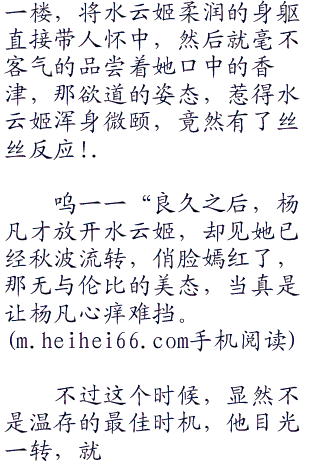 一楼，将水云姬柔润的身躯
直接带人怀中，然后就毫不
客气的品尝着她口中的香
津，那欲道的姿态，惹得水
云姬浑身微颐，竟然有了丝
丝反应!.
呜一一“良久之后，杨
凡才放开水云姬，却见她已
经秋波流转，俏脸嫣红了，
那无与伦比的美态，当真是
让杨凡心痒难挡。
(m.heihei66.com手机阅读)
不过这个时候，显然不
是温存的最佳时机，他目光
一转，就